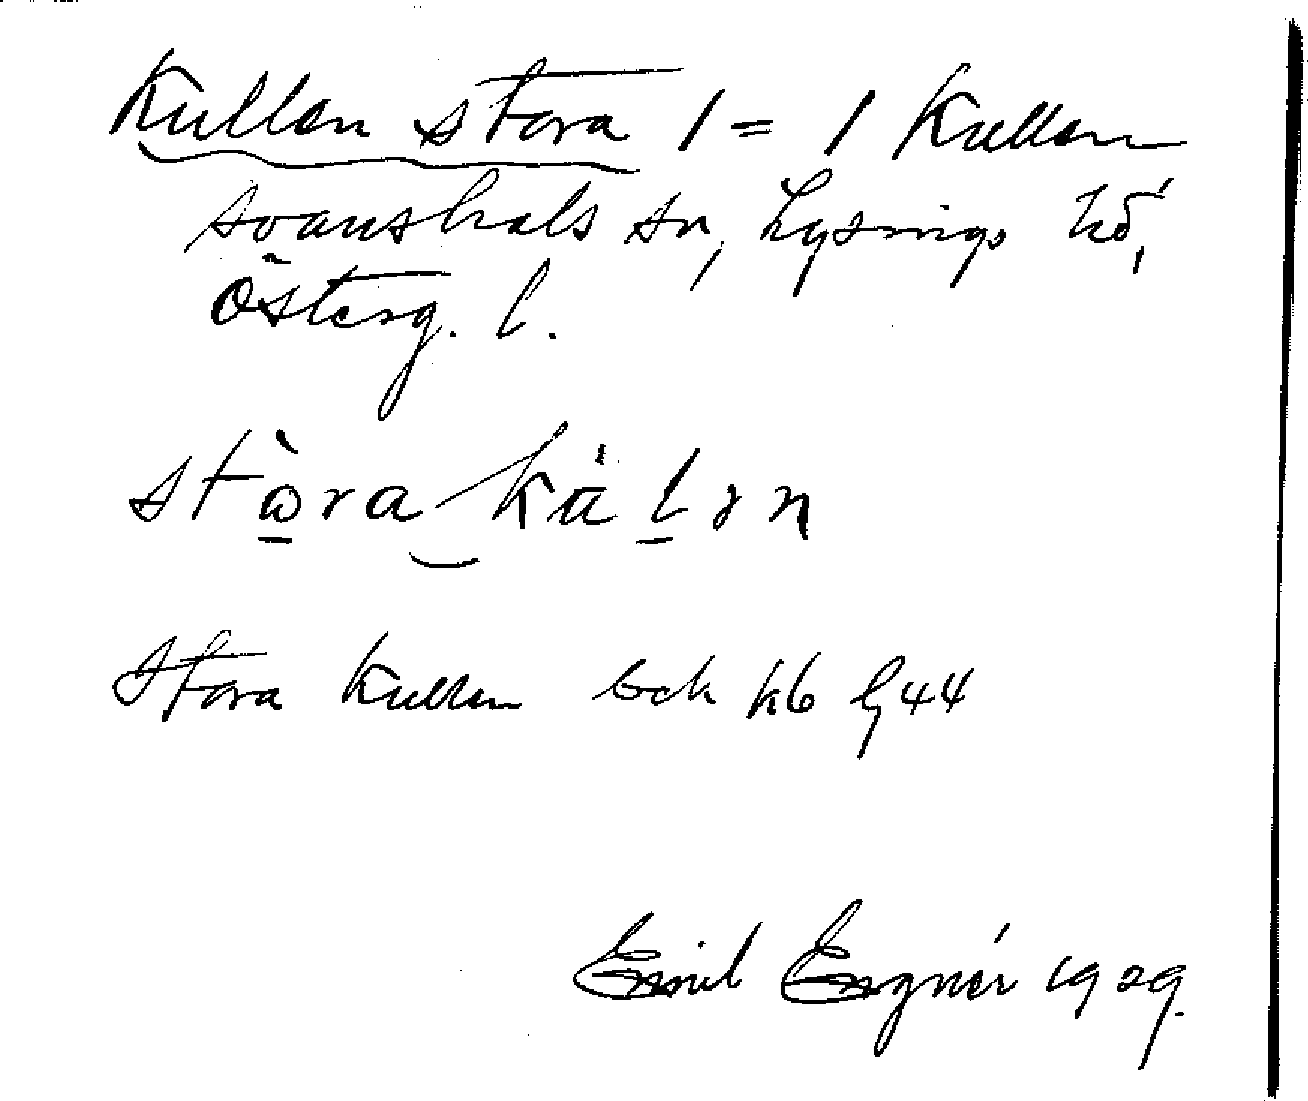 Kullen stora 1 = 1 Kullen
Svanshals sn, Lysings hd,
Österg. l.
stòra kälen
Stora Kullen Eck kb 44
Emil Engnér 1929.